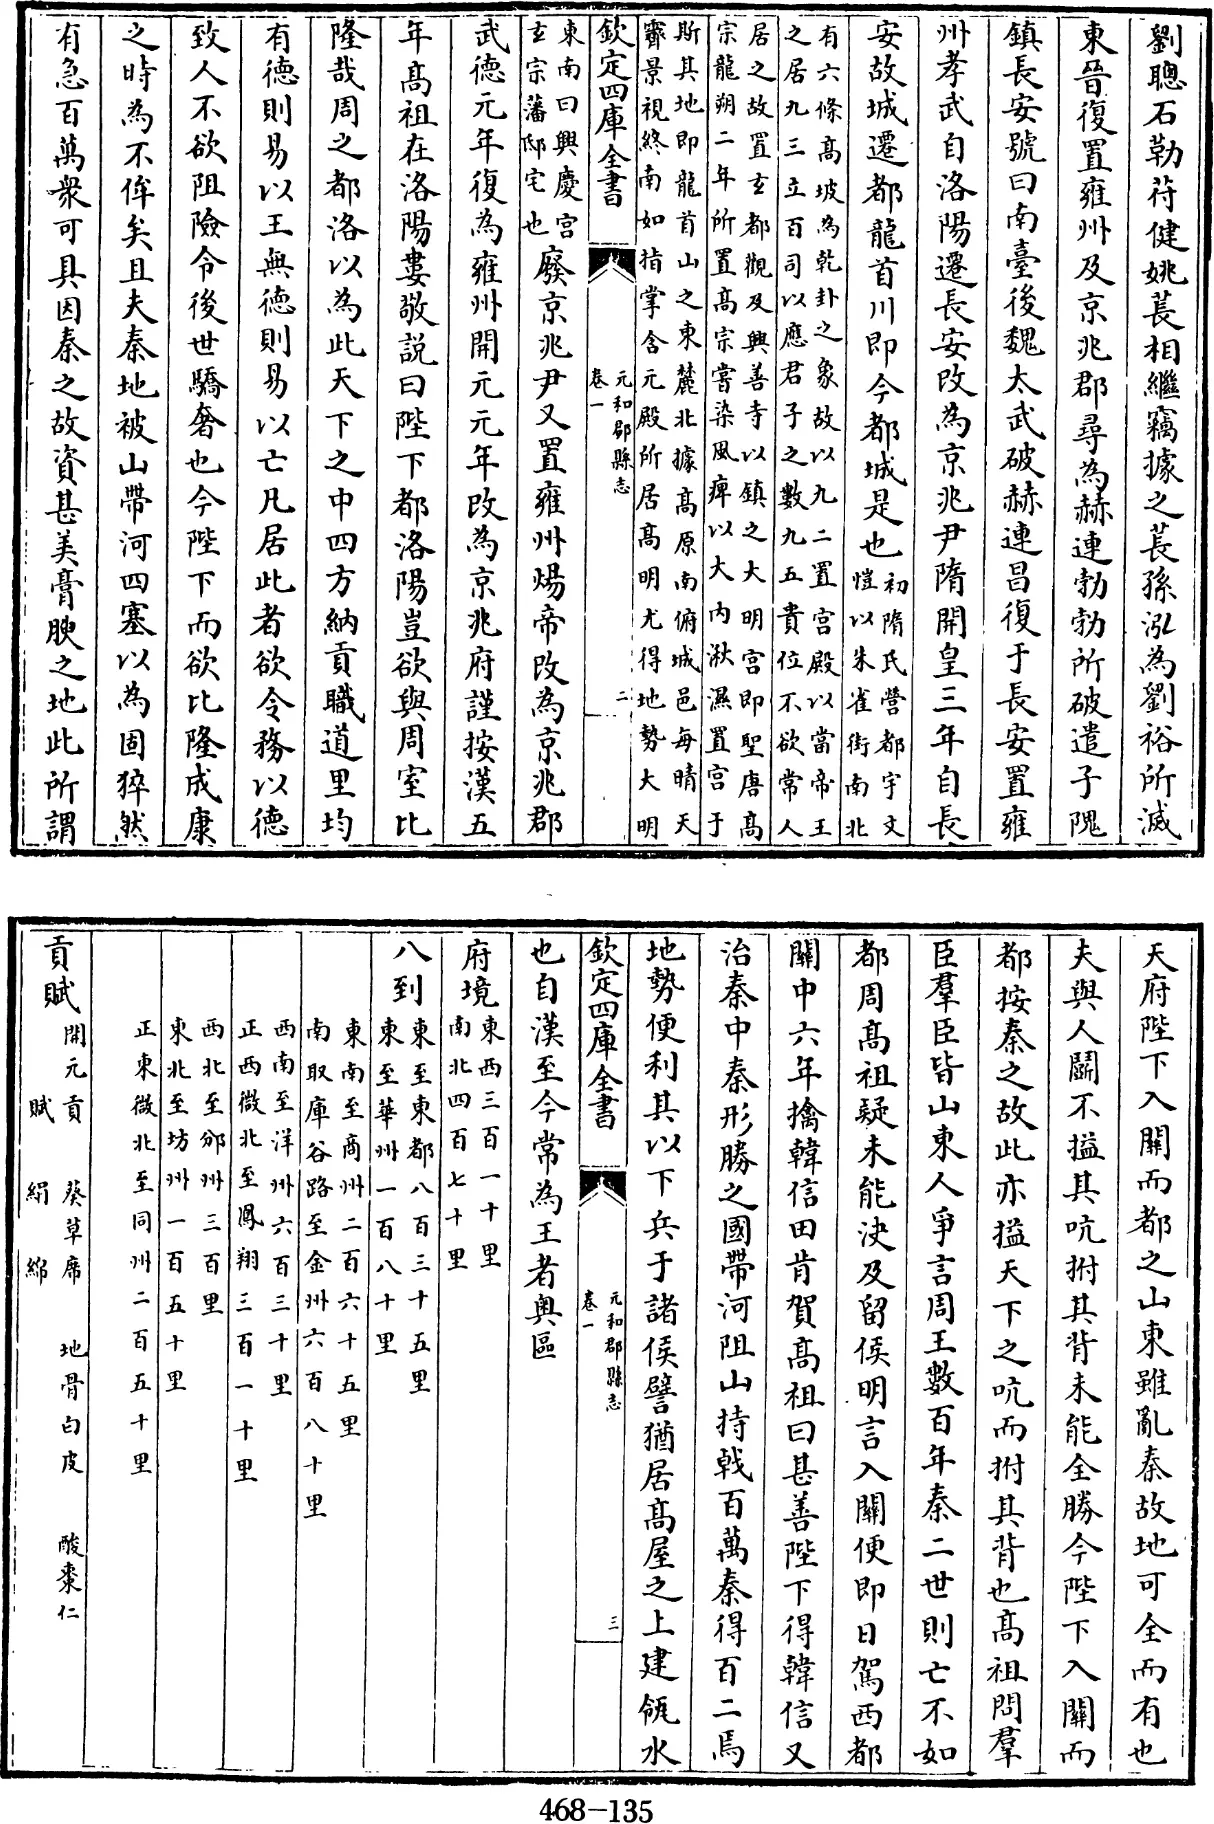 劉聰石勒苻健姚萇相繼竊據之萇孫泓為劉裕所滅
東晉復置雍州及京兆郡尋為赫連勃勃所破遣子隗
鎮長安號曰南臺後魏太武破赫連昌復于長安置雍
州孝武自洛陽遷長安改為京兆尹隋開皇三年自長
安故城遷都龍首川即今都城是也
初隋氏營都宇文
愷以朱雀街南北
有六條高坡為乾卦之象故以九二置宫殿以當帝王
之居九三立百司以應君子之數九五貴位不欲常人
居之故置玄都觀及興善寺以鎮之大明宫即聖唐高
宗龍朔二年所置高宗嘗染風痺以大内湫濕置宫于
斯其地即龍首山之東麓北據高原南俯城邑每晴天
霽景視終南如指掌含元殿所居高明尤得地勢大明
欽定四庫全書
元和郡縣志
卷一
二
東南曰興慶宫
玄宗藩邸宅也
廢京兆尹又置雍州煬帝改為京兆郡
武德元年復為雍州開元元年改為京兆府謹按漢五
年高祖在洛陽婁敬説曰陛下都洛陽豈欲與周室比
隆哉周之都洛以為此天下之中四方納貢職道里均
有德則易以王無德則易以亡凡居此者欲令務以德
致人不欲阻險令後世驕奢也今陛下而欲比隆成康
之時為不侔矣且夫秦地被山帶河四塞以為固猝然
有急百萬衆可具因秦之故資甚美膏腴之地此所謂
天府陛下入關而都之山東雖亂秦故地可全而有也
夫與人鬭不搤其吭拊其背未能全勝今陛下入關而
都按秦之故此亦搤天下之吭而拊其背也高祖問羣
臣羣臣皆山東人爭言周王數百年秦二世則亡不如
都周高祖疑未能決及留侯明言入關便即日駕西都
關中六年擒韓信田肯賀高祖曰甚善陛下得韓信又
治秦中秦形勝之國帶河阻山持戟百萬秦得百二焉
地勢便利其以下兵于諸侯譬猶居高屋之上建瓴水
欽定四庫全書
元和郡縣志
卷一
三
也自漢至今常為王者奥區
府境
東西三百一十里
南北四百七十里
八到
東至東都八百三十五里
東至華州一百八十里
東南至商州二百六十五里
南取庫谷路至金州六百八十里
西南至洋州六百三十里
正西微北至鳳翔三百一十里
西北至邠州三百里
東北至坊州一百五十里
正東微北至同州二百五十里
貢賦
開元貢 葵草席 地骨白皮 酸棗仁
賦 絹 綿
468-135